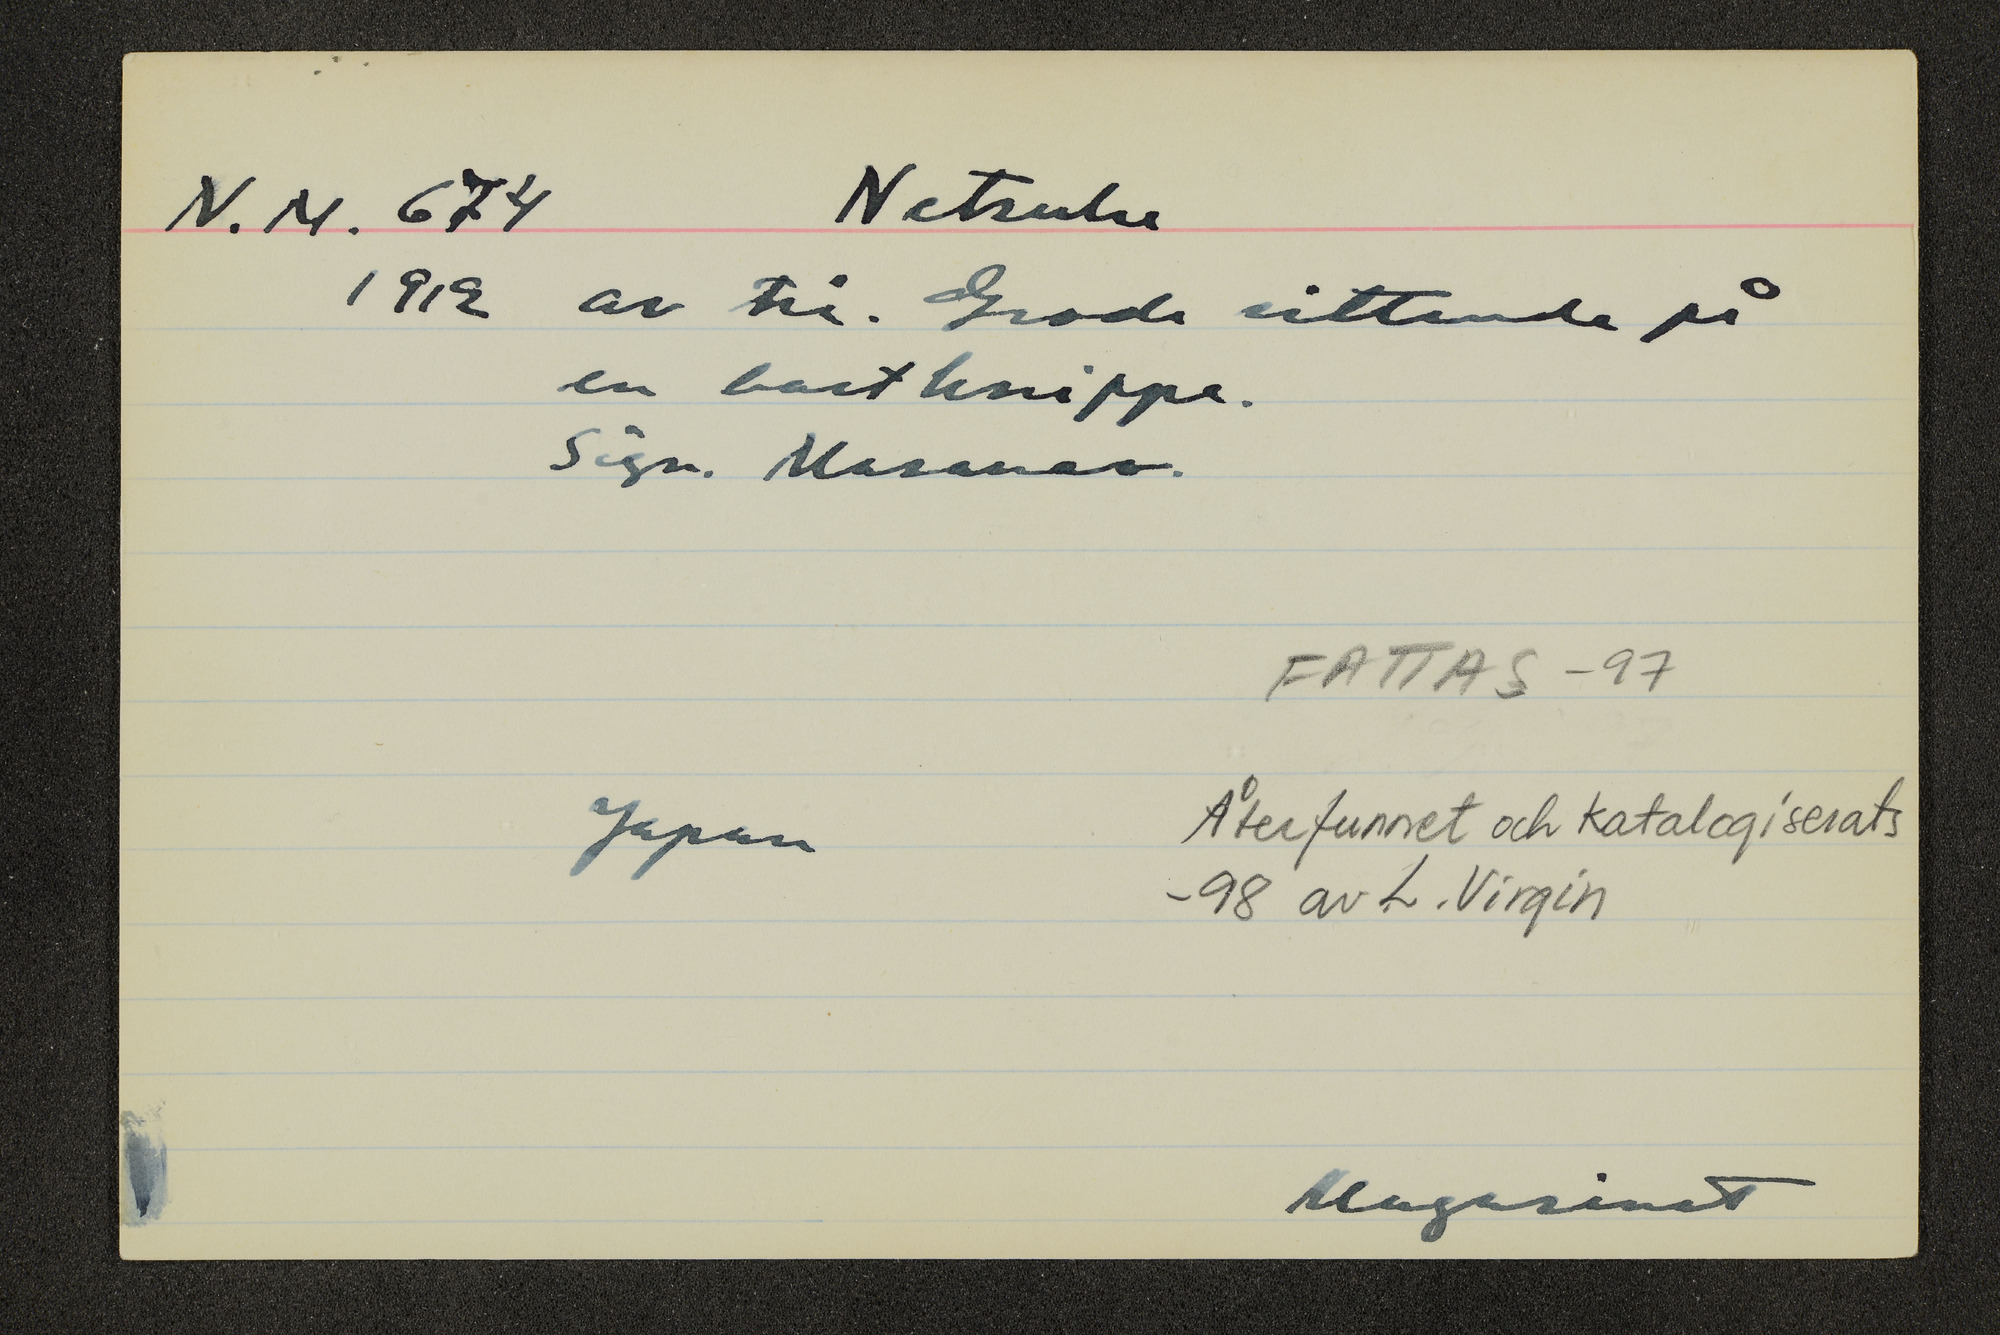 N.M. 674 Netsuke
1912 av trä. Groda sittande på
en bastknippe.
Sign. Masanao.
FATTAS -97
Japan
Återfunnet och katalogiserats
-98 av L. Virgin
Magasinet